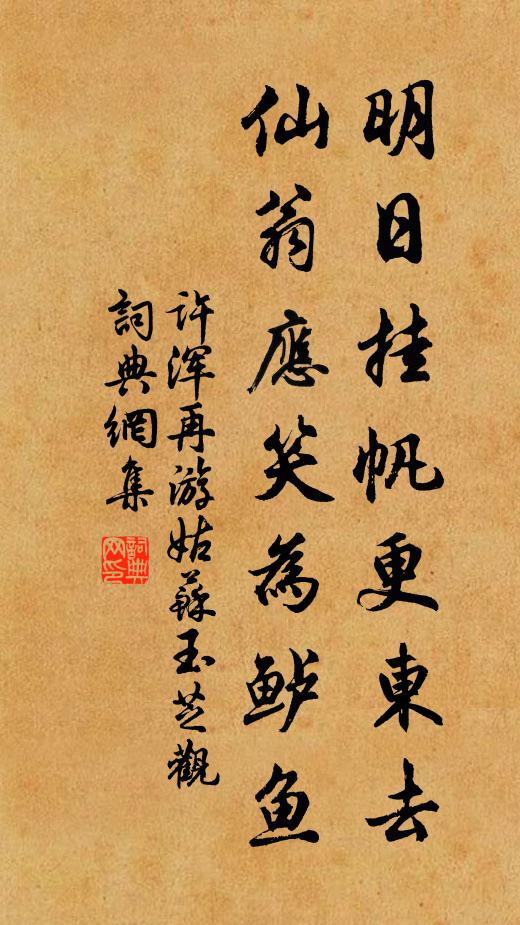 明日挂帆更東去
仙翁應笑為鲈鱼
许浑再游姑蘇玉芝觀
詞典網集
詞典
网印